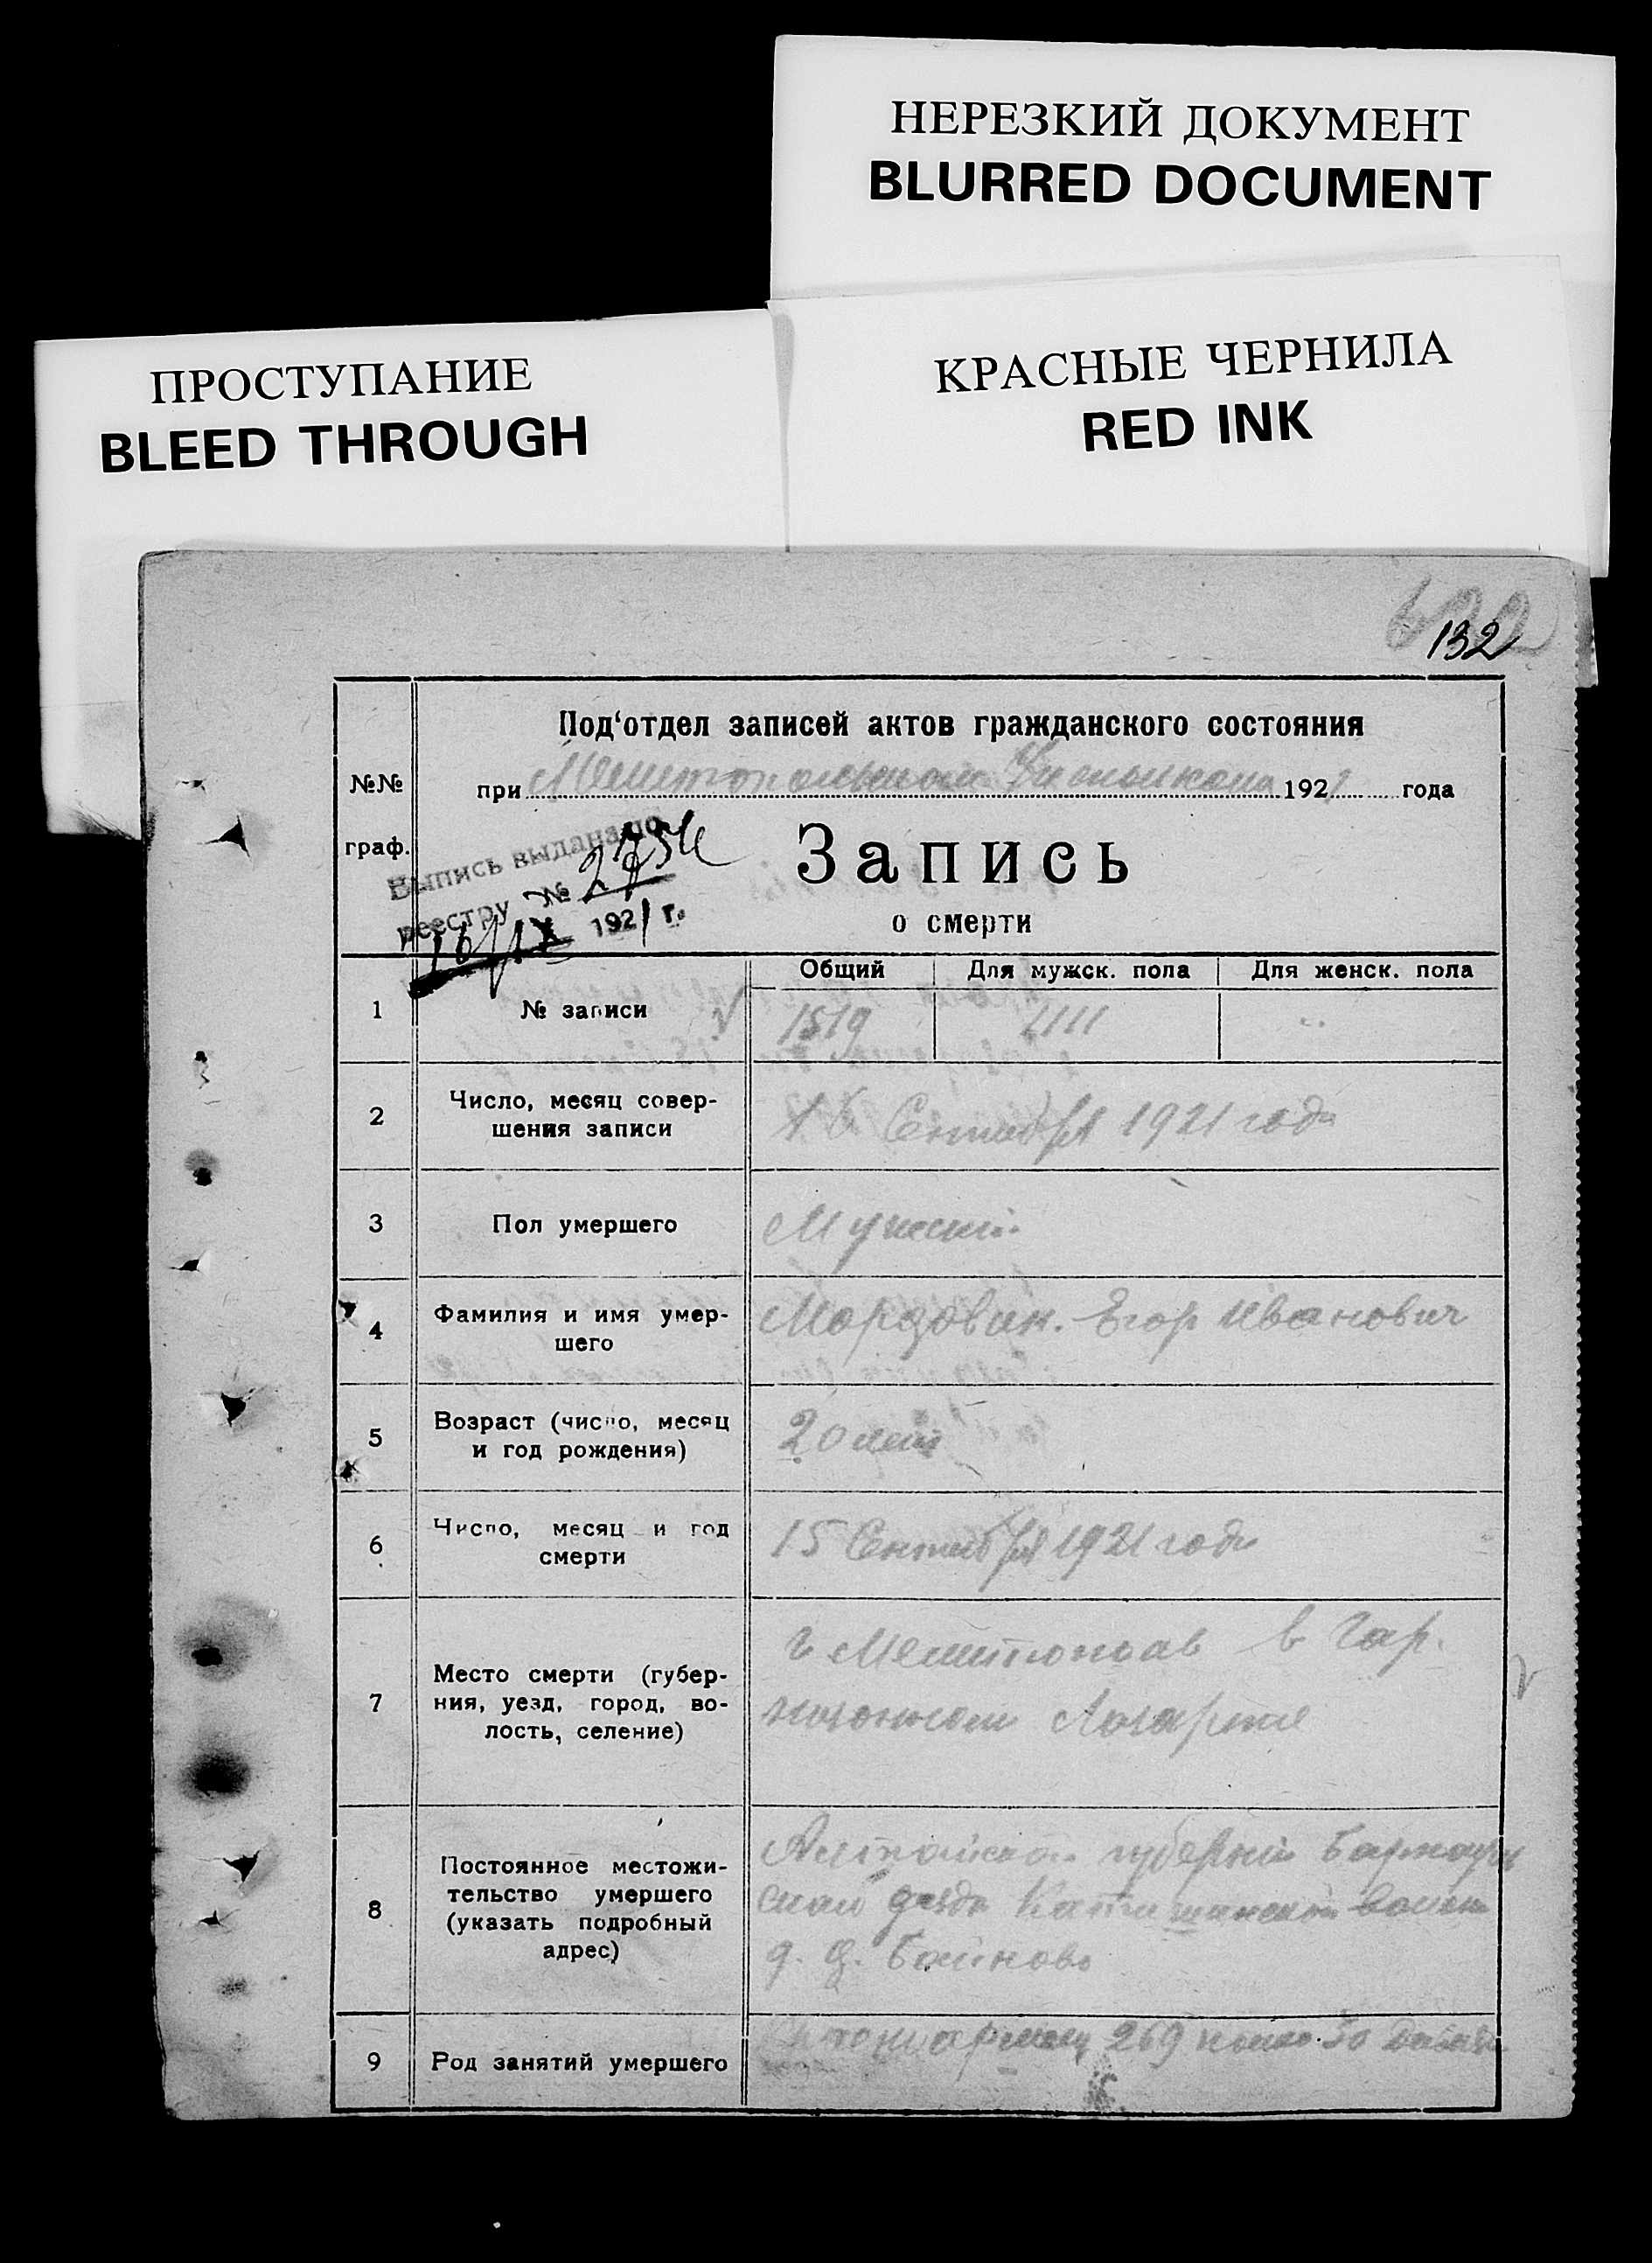 НЕРЕЗКИЙ ДОКУМЕНТ
BLURRED DOCUMENT
КРАСНЫЕ ЧЕРНИЛА
RED INK
ПРОСТУПАНИЕ
BLEED THROUGH
132
Под‘отдел записей актов гражданского состояния
№№
граф.
при 1921 года
Выпись выдана по
реестру №
1921 г.
Запись
о смерти
Общий Для мужск. пола Для женск. пола
1 № записи 1519 1111 "
2 Число, месяц совер-
шения записи
16 Сентября 1921 года
3 Пол умершего Мужской
4 Фамилия и имя умер-
шего
Мордовин. Егор Иванович
5 Возраст (число, месяц
и год рождения)
20 лет
6 Число, месяц и год
смерти
15 Сентября 1921 года
7 Место смерти (губер-
ния, уезд, город, во-
лость, селение)
г Мелитополь в Гар.
низонном Лазарете
8 Постоянное местожи-
тельство умершего
(указать подробный
адрес)
Алтайской губернии Барнауль
ской уезда волости
д.
9 Род занятий умершего
269 полка 30 Дивизи